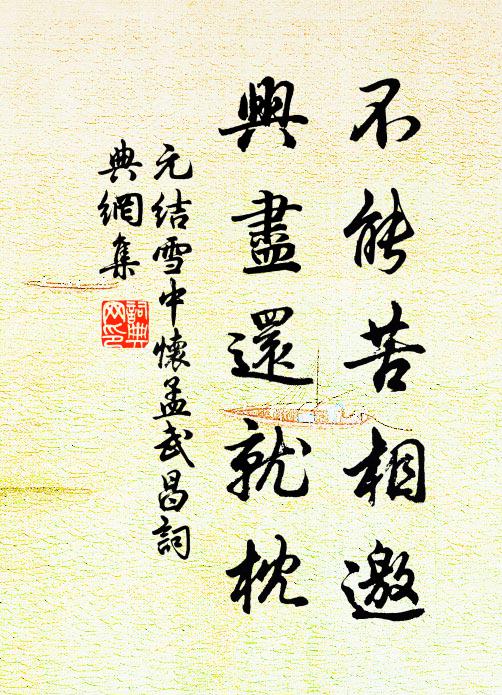 不能苦相邀
興盡還就枕
元結雪中懷孟武昌詞
典網集
詞典
网印